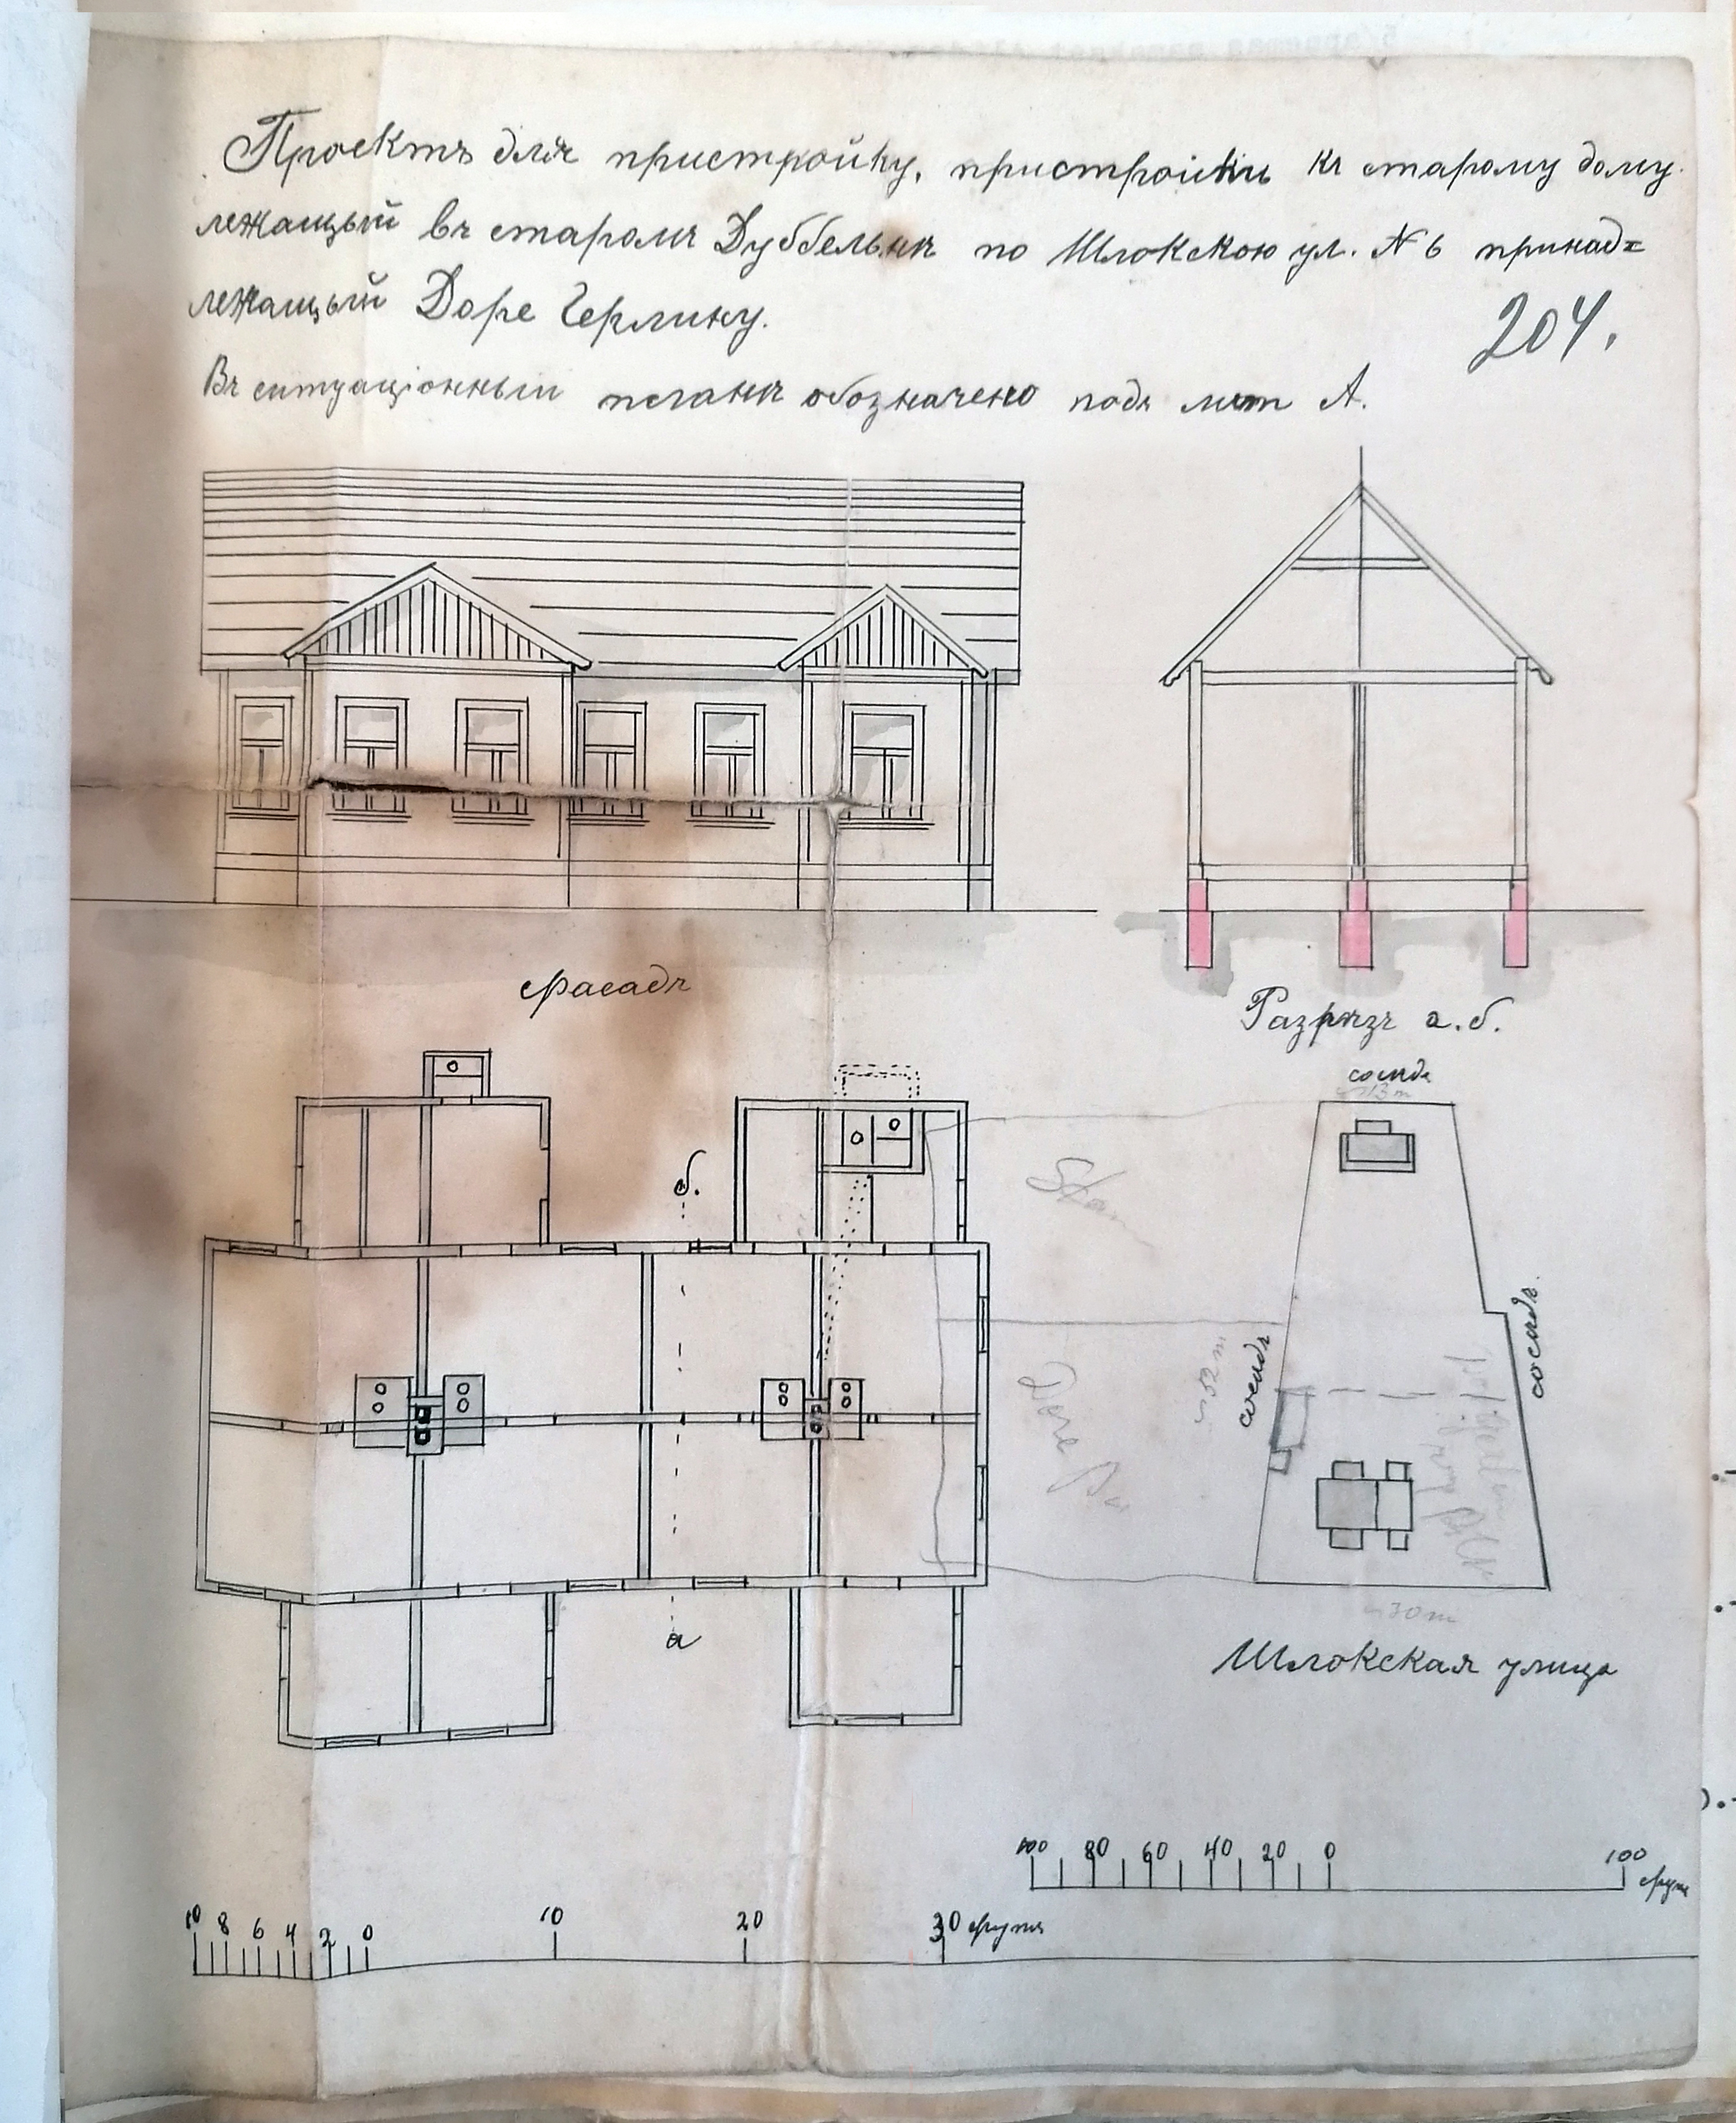 Проектъ для пристройку, пристройки къ старому дому
лежащый въ старомъ Дуббельнъ по Шлокскою ул. N 6 принад=
лежащый Доре Герлину.
204.
Въ ситуаціонный планъ обозначено подъ лит А.
Фасадъ
Разрѣзъ а.б.
сосѣдъ
~13 m
б.
сосѣдъ
~52 m
сосѣдъ.
а
~30 m
Шлокская улица
100 80 60 40 20 0 100 футъ
10 8 6 4 2 0 10 20 30 футъ